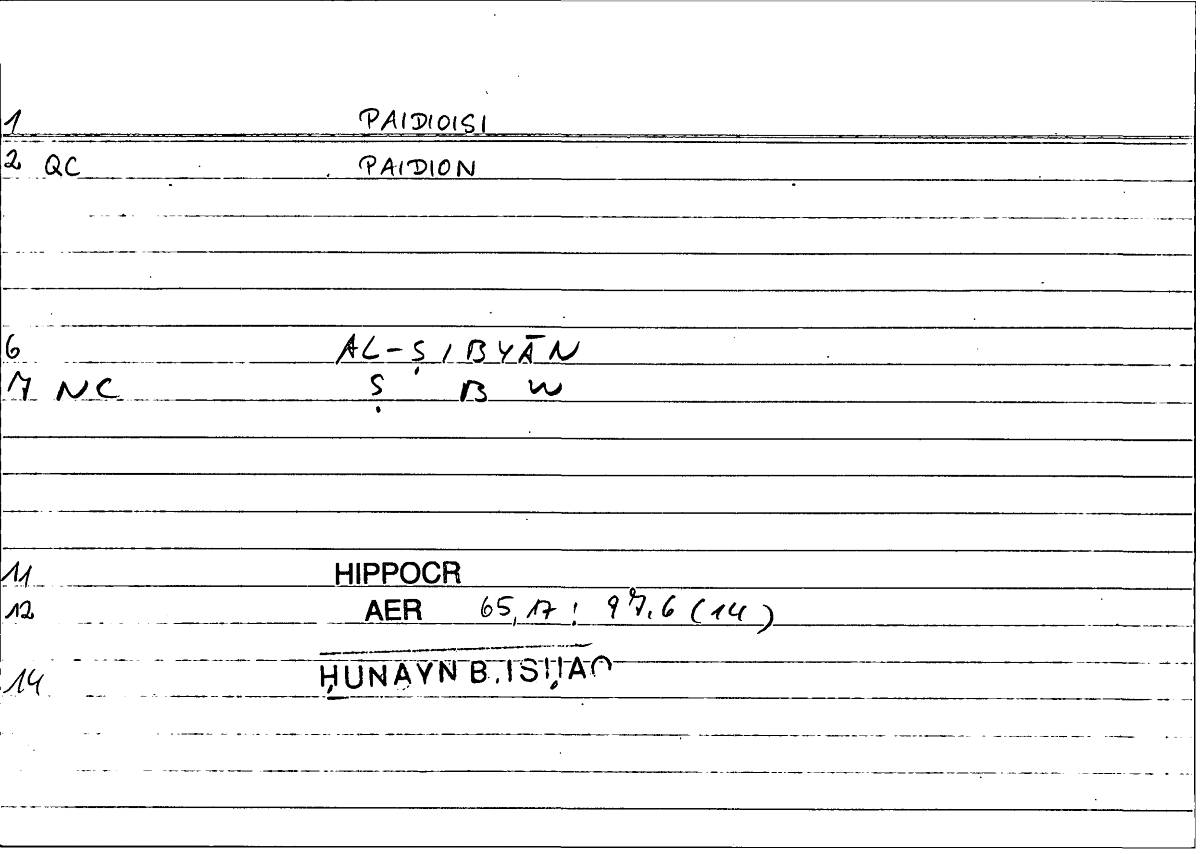 1 PAIDIOISI
2 QC PAIDION
6 AL-ṢIBYĀN
7 NC Ṣ B W
11 HIPPOCR
12 AER 65,17 : 97,6 (14)
14 ḤUNAYN B. ISḤAQ